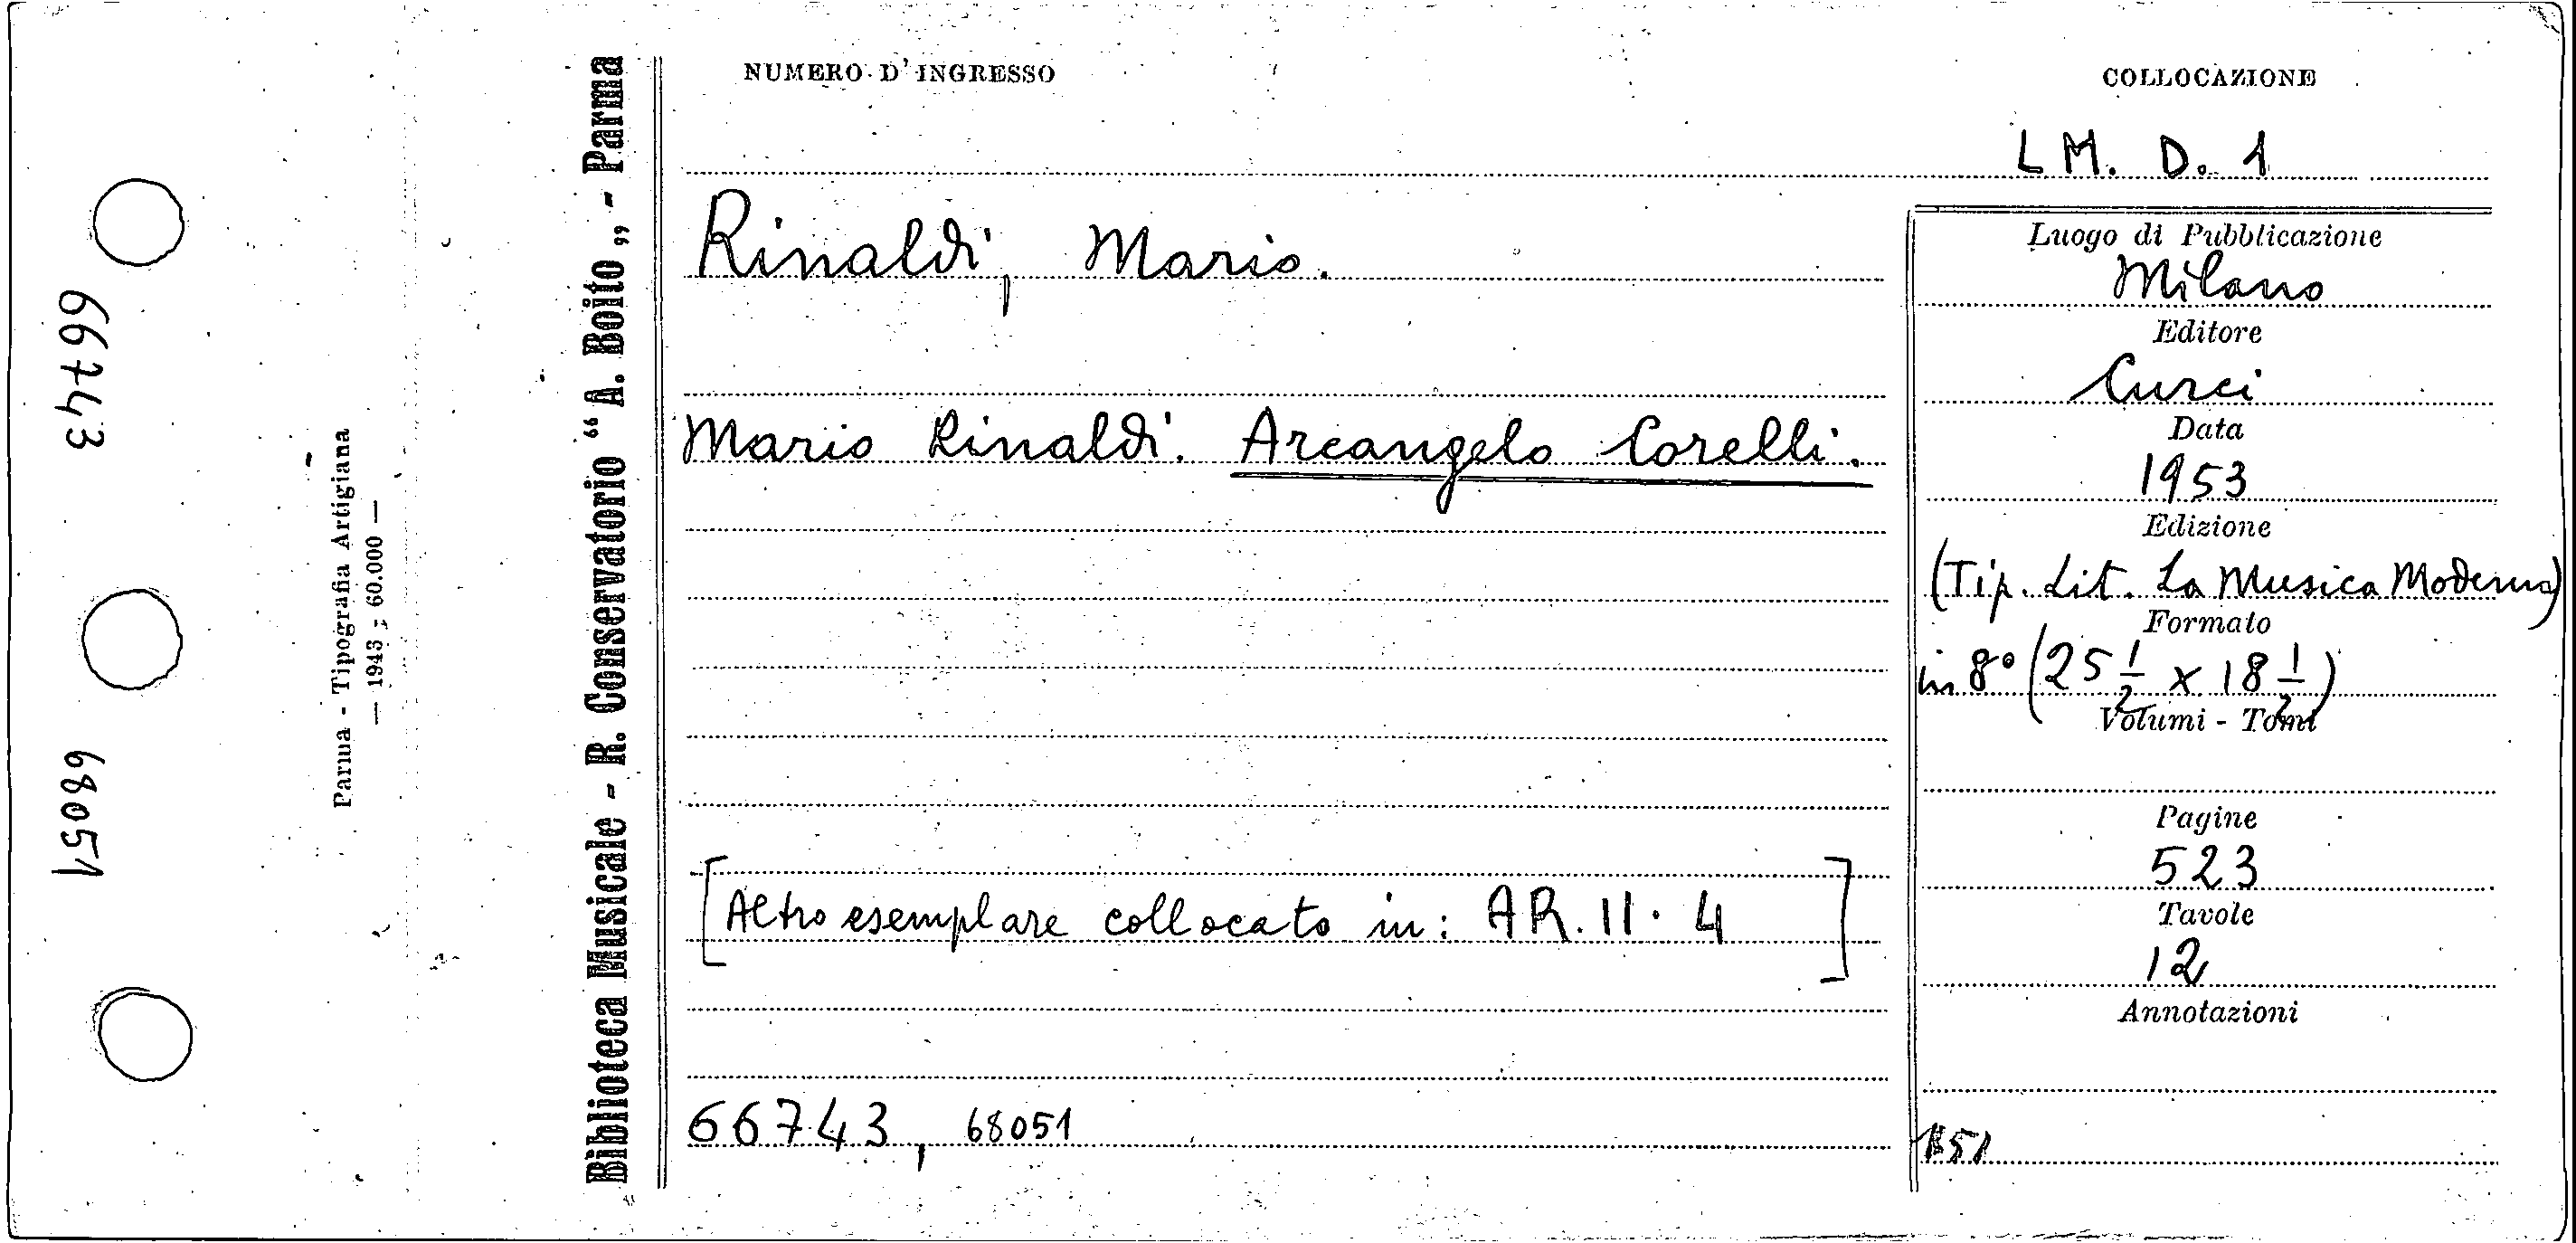 66743
68051
Parma - Tipografia Artigiana
— 1943 ; 60.000 —
Biblioteca Musicale - R. Conservatorio “ A. Boito „ - Parma
NUMERO D'INGRESSO
COLLOCAZIONE
LM. D. 1
Rinaldi, Mario.
Mario Rinaldi. Arcangelo Corelli.
[Altro esemplare collocato in: AR. II. 4]
66743, 68051
Luogo di Pubblicazione
Milano
Editore
Curci
Data
1953
Edizione
(Tip. Lit. La Musica Moderna)
Formato
in 8° (25 1/2 x 18 1/2)
Volumi - Tomi
Pagine
523
Tavole
12
Annotazioni